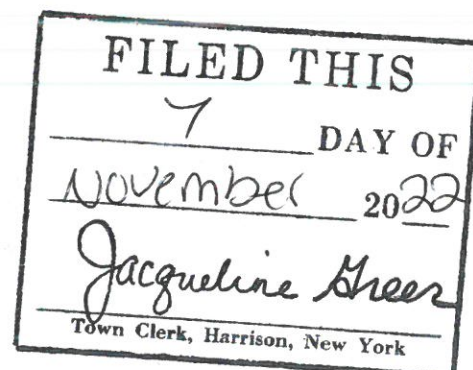 FILED THIS
7 DAY OF
November 2022
Jacqueline Greer
Town Clerk, Harrison, New York